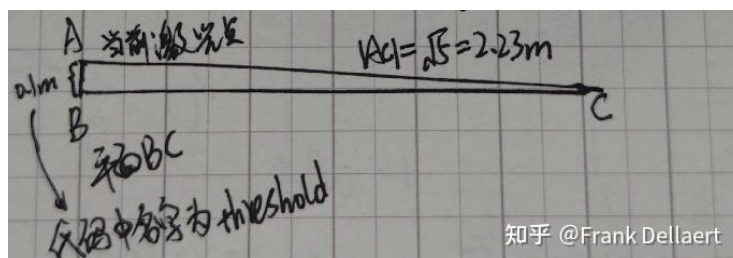 A 当前激光点 |AC|=√5=2.23m
0.1m
B
C
平面BC
代码中名字为threshold
知乎 @Frank Dellaert